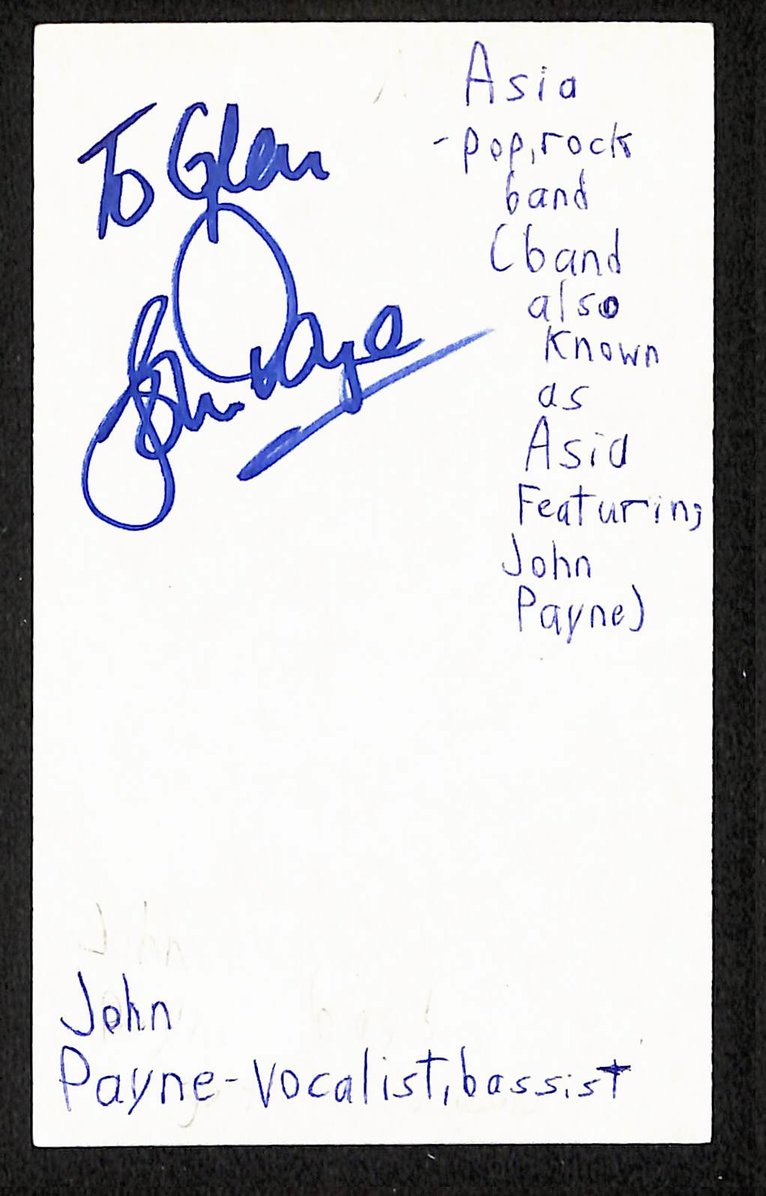 To Glen
John Payne
Asia
-pop, rock
band
(band
also
known
as
Asia
Featuring
John
Payne)
John
Payne-vocalist, bassist